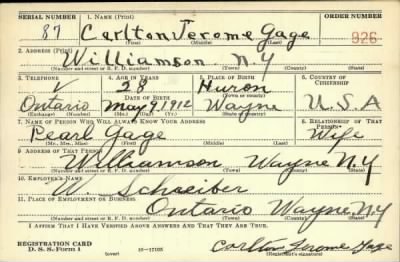 SERIAL NUMBER 1. NAME (Print) ORDER NUMBER
87 Carlton Jerome Gage 926
(First) (Middle) (Last)
2. ADDRESS (Print)
Williamson N.Y
(Number and street or R. F. D. number) (Town) (County) (State)
3. TELEPHONE 4. AGE IN YEARS 5. PLACE OF BIRTH 6. COUNTRY OF CITIZENSHIP
28 Huron
DATE OF BIRTH (Town or county)
Ontario May 9 1912 Wayne U.S.A
(Exchange) (Number) (Mo.) (Day) (Yr.) (State or country)
7. NAME OF PERSON WHO WILL ALWAYS KNOW YOUR ADDRESS 8. RELATIONSHIP OF THAT PERSON
Pearl Gage Wife
(Mr., Mrs., Miss) (First) (Middle) (Last)
9. ADDRESS OF THAT PERSON
Williamson Wayne N.Y
(Number and street or R. F. D. number) (Town) (County) (State)
10. EMPLOYER'S NAME
W. Schreiber
11. PLACE OF EMPLOYMENT OR BUSINESS
Ontario Wayne N.Y
(Number and street or R. F. D. number) (Town) (County) (State)
I AFFIRM THAT I HAVE VERIFIED ABOVE ANSWERS AND THAT THEY ARE TRUE.
REGISTRATION CARD
D. S. S. Form 1 (over) 16—17105 Carlton Jerome Gage
(Registrant's signature)